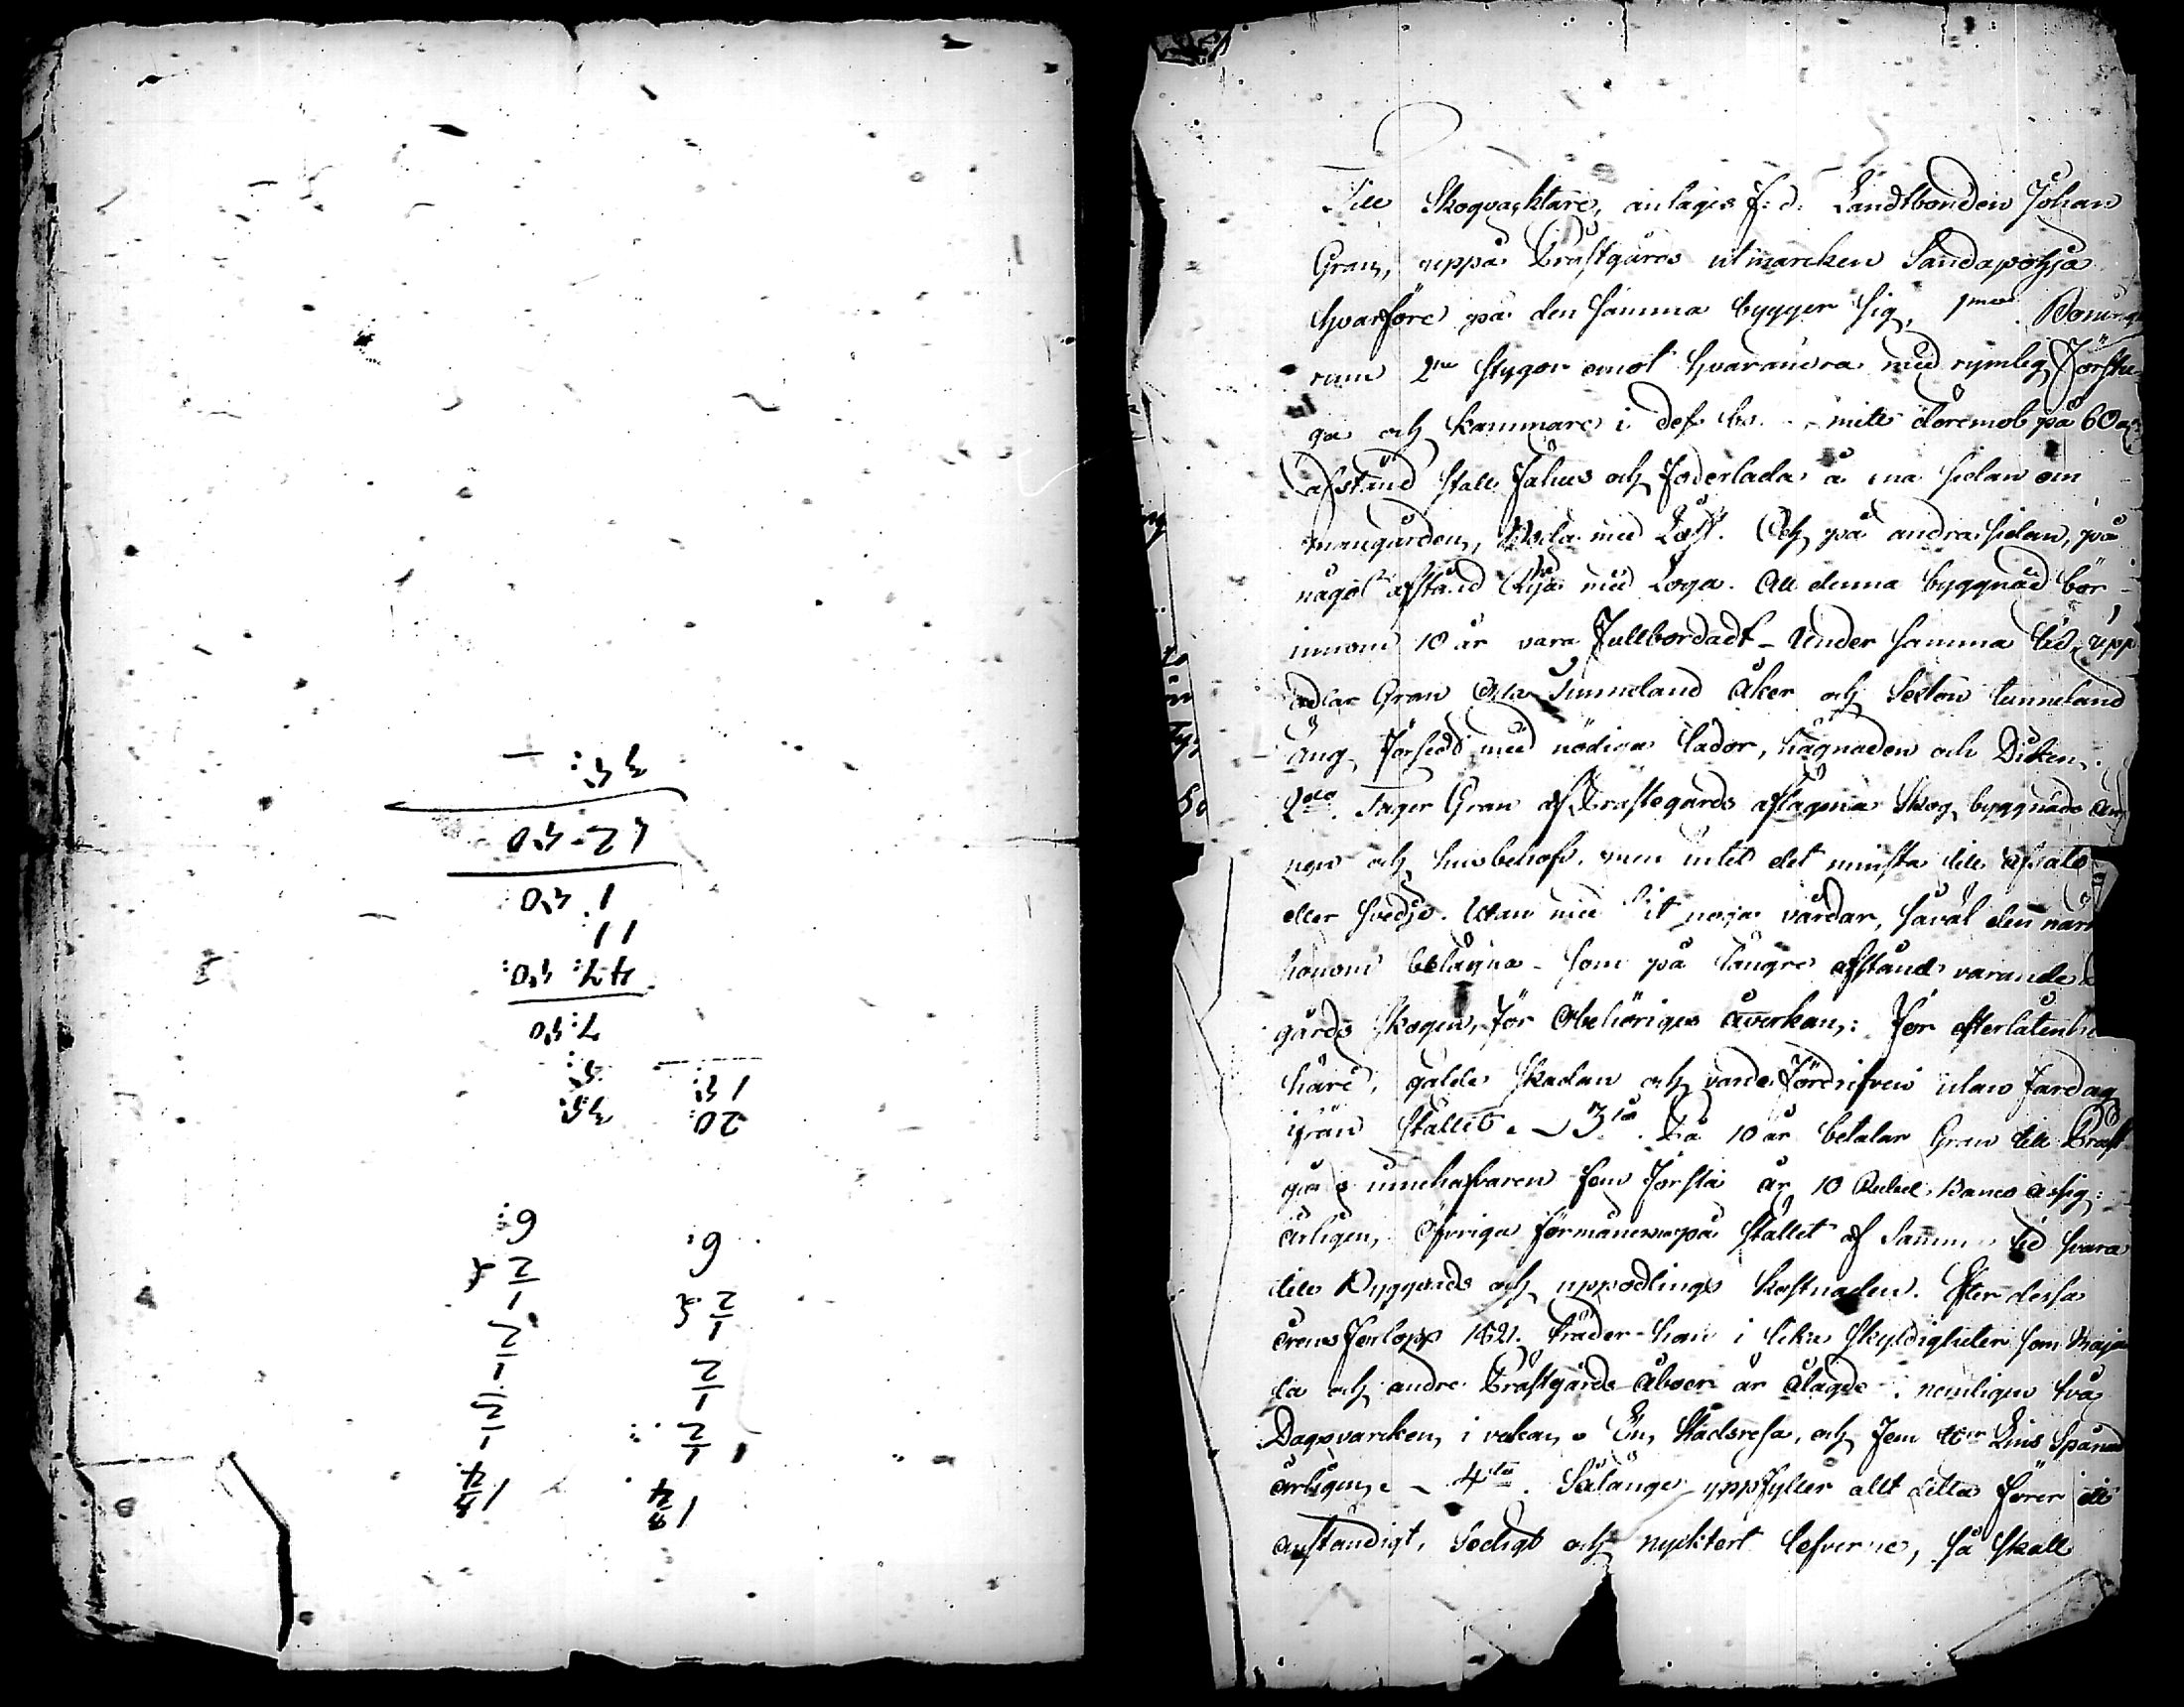 35: —
12-50
1. 50
11:
47: 50:
7:50
5:
35: 15:
20:
6: 6:
1/2 1/2
1/2 1/2
1/2 1/2
1 3/4 1 3/4
Till Skogvacktare, antages f: d: Landtbonden Johan
Gran, uppå Prästgårds utmarcken Sandapohja
hvarföre på den samma bygger sig, 1mo Bonings
rum 2ne stugor emot hvarandra med rymlig förstu-
ga och kammare i def midt däremot på 60
afstånd stall Fähus och foderlada å ena sidan om
mangården, Boda med Loft. Och på andra sidan, på
något afstånd Ria med Loga. All denna byggnad bör
innom 10 år vara Fullbordadt – Under samma tid, upp
odlar Gran Otta Tunneland åker och Sexton tunneland
äng, försedd med nödiga lador, hägnaden och Diken.
2do Tager Gran af Prästegårds aflägsna Skog, byggnads äm
nen och husbehof, men intet det minsta till afsalu
eller svedje. Utan med flit noga vårdar, såväl den när
honom belägna – som på längre afstånd varande
gårds skogen, för Obehöriges åverkan,: för efterlåtenhe
häri, gälde skadan och varde Fördrifven utan fardag
ifrån stället. – 3tio På 10 år betalar Gran till Präst
gårds innehafvaren fem första år 10 Rubel Banco Assig:
årligen, Öfriga förmånerna på stället af Samma tid svara
till Byggnads och uppodlings kostnaden. Efter dessa
årens Förlopp 1821. träder han i lika skyldigheter som Maja
la och andre Prästgårds Åboer är ålagde: nemligen två
Dagsvarcken i vekan, En Stadsresa, och fem ttr Lins Spånad
årligen, – 4to Sålänge uppfyller allt detta förer ett
anständigt, Sedigt och nycktert lefverne, så skall